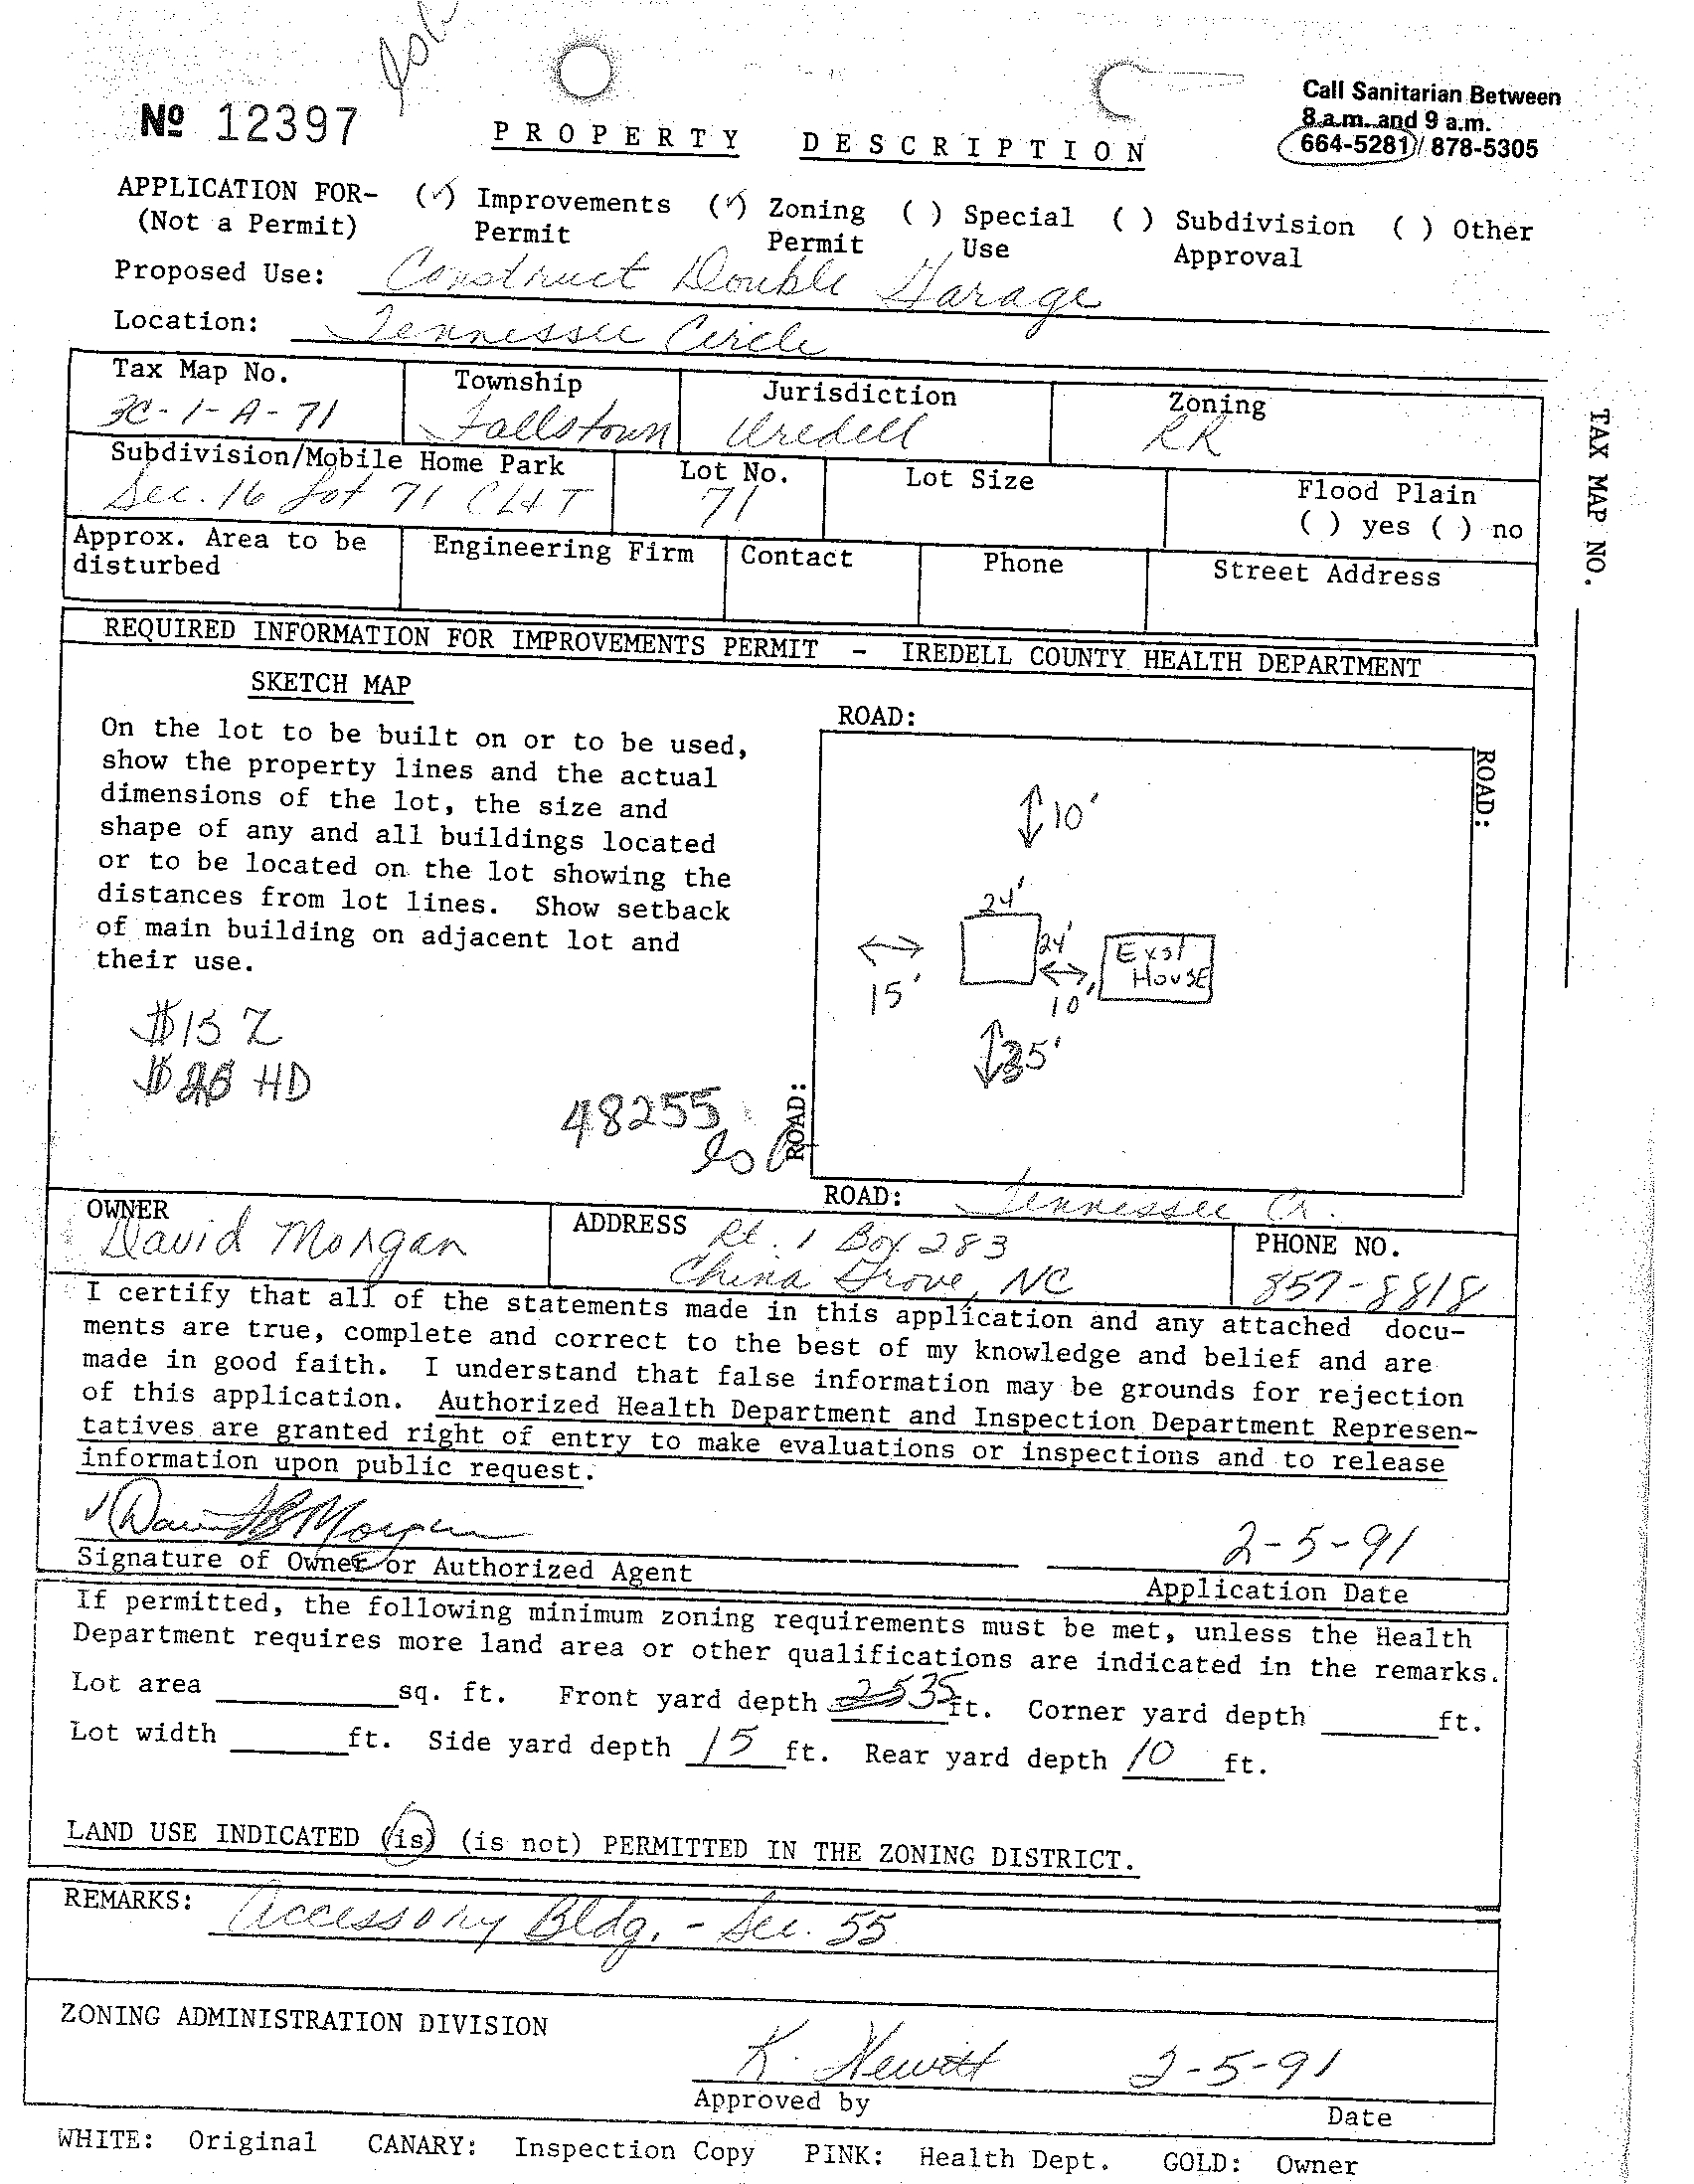 Nº 12397
PROPERTY DESCRIPTION
Call Sanitarian Between
8 a.m. and 9 a.m.
664-5281 / 878-5305
APPLICATION FOR- (✓) Improvements (✓) Zoning ( ) Special ( ) Subdivision ( ) Other
(Not a Permit) Permit Permit Use Approval
Proposed Use: Construct Double Garage
Location: Tennessee Circle
Tax Map No. Township Jurisdiction Zoning
3C-1-A-71 Fallstown Iredell RR
Subdivision/Mobile Home Park Lot No. Lot Size Flood Plain
Sec. 16 Lot 71 CLHT 71 ( ) yes ( ) no
Approx. Area to be Engineering Firm Contact Phone Street Address
disturbed
TAX MAP NO.
REQUIRED INFORMATION FOR IMPROVEMENTS PERMIT - IREDELL COUNTY HEALTH DEPARTMENT
SKETCH MAP
On the lot to be built on or to be used,
show the property lines and the actual
dimensions of the lot, the size and
shape of any and all buildings located
or to be located on the lot showing the
distances from lot lines. Show setback
of main building on adjacent lot and
their use.
$15 Z
HD
48255
ROAD:
ROAD:
10'
24'
24'
Exst
House
15'
10'
35'
ROAD:
ROAD: Tennessee Cr.
OWNER ADDRESS Rt. 1 Box 283 PHONE NO.
David Morgan China Grove, NC 857-8818
I certify that all of the statements made in this application and any attached docu-
ments are true, complete and correct to the best of my knowledge and belief and are
made in good faith. I understand that false information may be grounds for rejection
of this application. Authorized Health Department and Inspection Department Represen-
tatives are granted right of entry to make evaluations or inspections and to release
information upon public request.
David B Morgan 2-5-91
Signature of Owner or Authorized Agent Application Date
If permitted, the following minimum zoning requirements must be met, unless the Health
Department requires more land area or other qualifications are indicated in the remarks.
Lot area ____ sq. ft. Front yard depth 35 ft. Corner yard depth ____ ft.
Lot width ____ ft. Side yard depth 15 ft. Rear yard depth 10 ft.
LAND USE INDICATED (is) (is not) PERMITTED IN THE ZONING DISTRICT.
REMARKS: Accessory Bldg. - Sec. 55
ZONING ADMINISTRATION DIVISION
K. Hewitt 2-5-91
Approved by Date
WHITE: Original CANARY: Inspection Copy PINK: Health Dept. GOLD: Owner